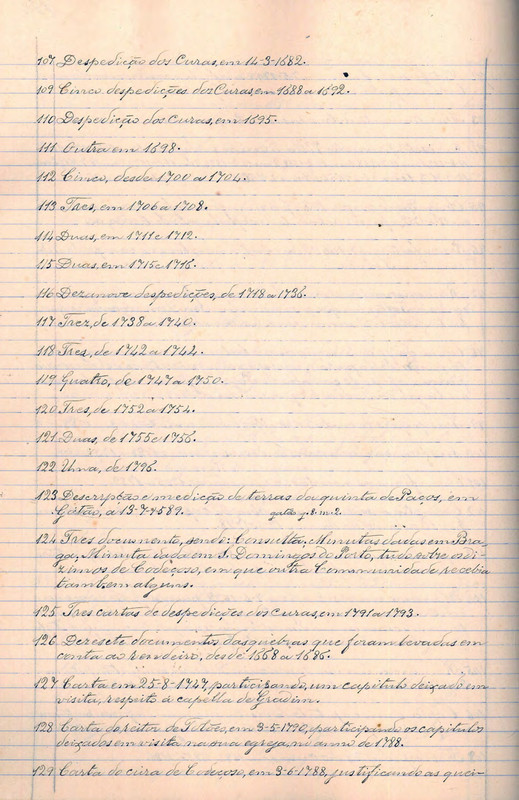 107 Despedição dos Curas, em 14-3-1682.
109 Cinco despedições dos Curas, em 1688 a 1692.
110 Despedição dos Curas, em 1695.
111 Outra em 1698.
112 Cinco, desde 1700 a 1704.
113 Tres, em 1706 a 1708.
114 Duas, em 1711 e 1712.
115 Duas, em 1715 e 1716.
116 Dezanove despedições, de 1718 a 1736.
117 Trez, de 1738 a 1740.
118 Tres, de 1742 a 1744.
119 Quatro, de 1747 a 1750.
120 Tres, de 1752 a 1754.
121 Duas, de 1755 e 1756.
122 Uma, de 1796.
123 Descrypção e medição de terras da quinta de Paços, em
Gatão, a 13-7-1589. gatão g. 8. m. 2.
124 Tres documento, sendo: Consulta, Minutas dadas em Bra-
ga, Minuta dada em S. Domingos do Porto, tudo sobre os di-
zimos de Codeçoso, em que outra Communidade recebia
tambem alguns.
125 Tres cartas de despedições dos Curas, em 1791 a 1793.
126 Desesete documentos das quebras que foram levadas em
conta ao rendeiro, desde 1668 a 1686.
127 Carta em 25-8-1747, participando, um capitulo deixado em
visita, respeito á capella de Gradim.
128 Carta do reitor de Tolões, em 3-5-1790, participando os capitulos
deixados em visita na sua egreja, no anno de 1788.
129 Carta do cura de Codeçoso, em 3-6-1788, justificando as quei-